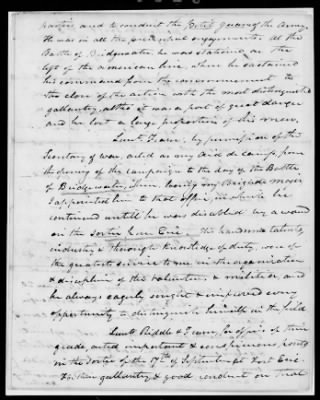 parties, and to conduct the Pet Guard of the Army.
He was in all the principal engagements. At the
Battle of Bridgewater he was stationed on the
left of the american line, where he sustained
his command from the commencement to
the close of the action with the most distinguished
gallantry, altho' it was a post of great danger
and he lost a large proportion of his men.
Lieut. Fraser, by permission of the
Secretary of war, acted as my aid de camp, from
the opening of the campaign to the day of the Battle
of Bridgewater, when losing my Brigade Major
I appointed him to that office, in which he
continued untill he was disabled by a wound
on the Sortie from Erie. His handsome talents,
industry & thorough knowledge of duty, were of
the greatest service to me in the organization
& discipline of the volunteers & militia, and
he always eagerly sought & improved every
opportunity to distinguish himself in the field
Lieuts Riddle & Fraser, for officers of their
grade, acted important & conspicuous parts
in the Sortie of the 17th of September at Fort Erie.
For their gallantry & good conduct on that